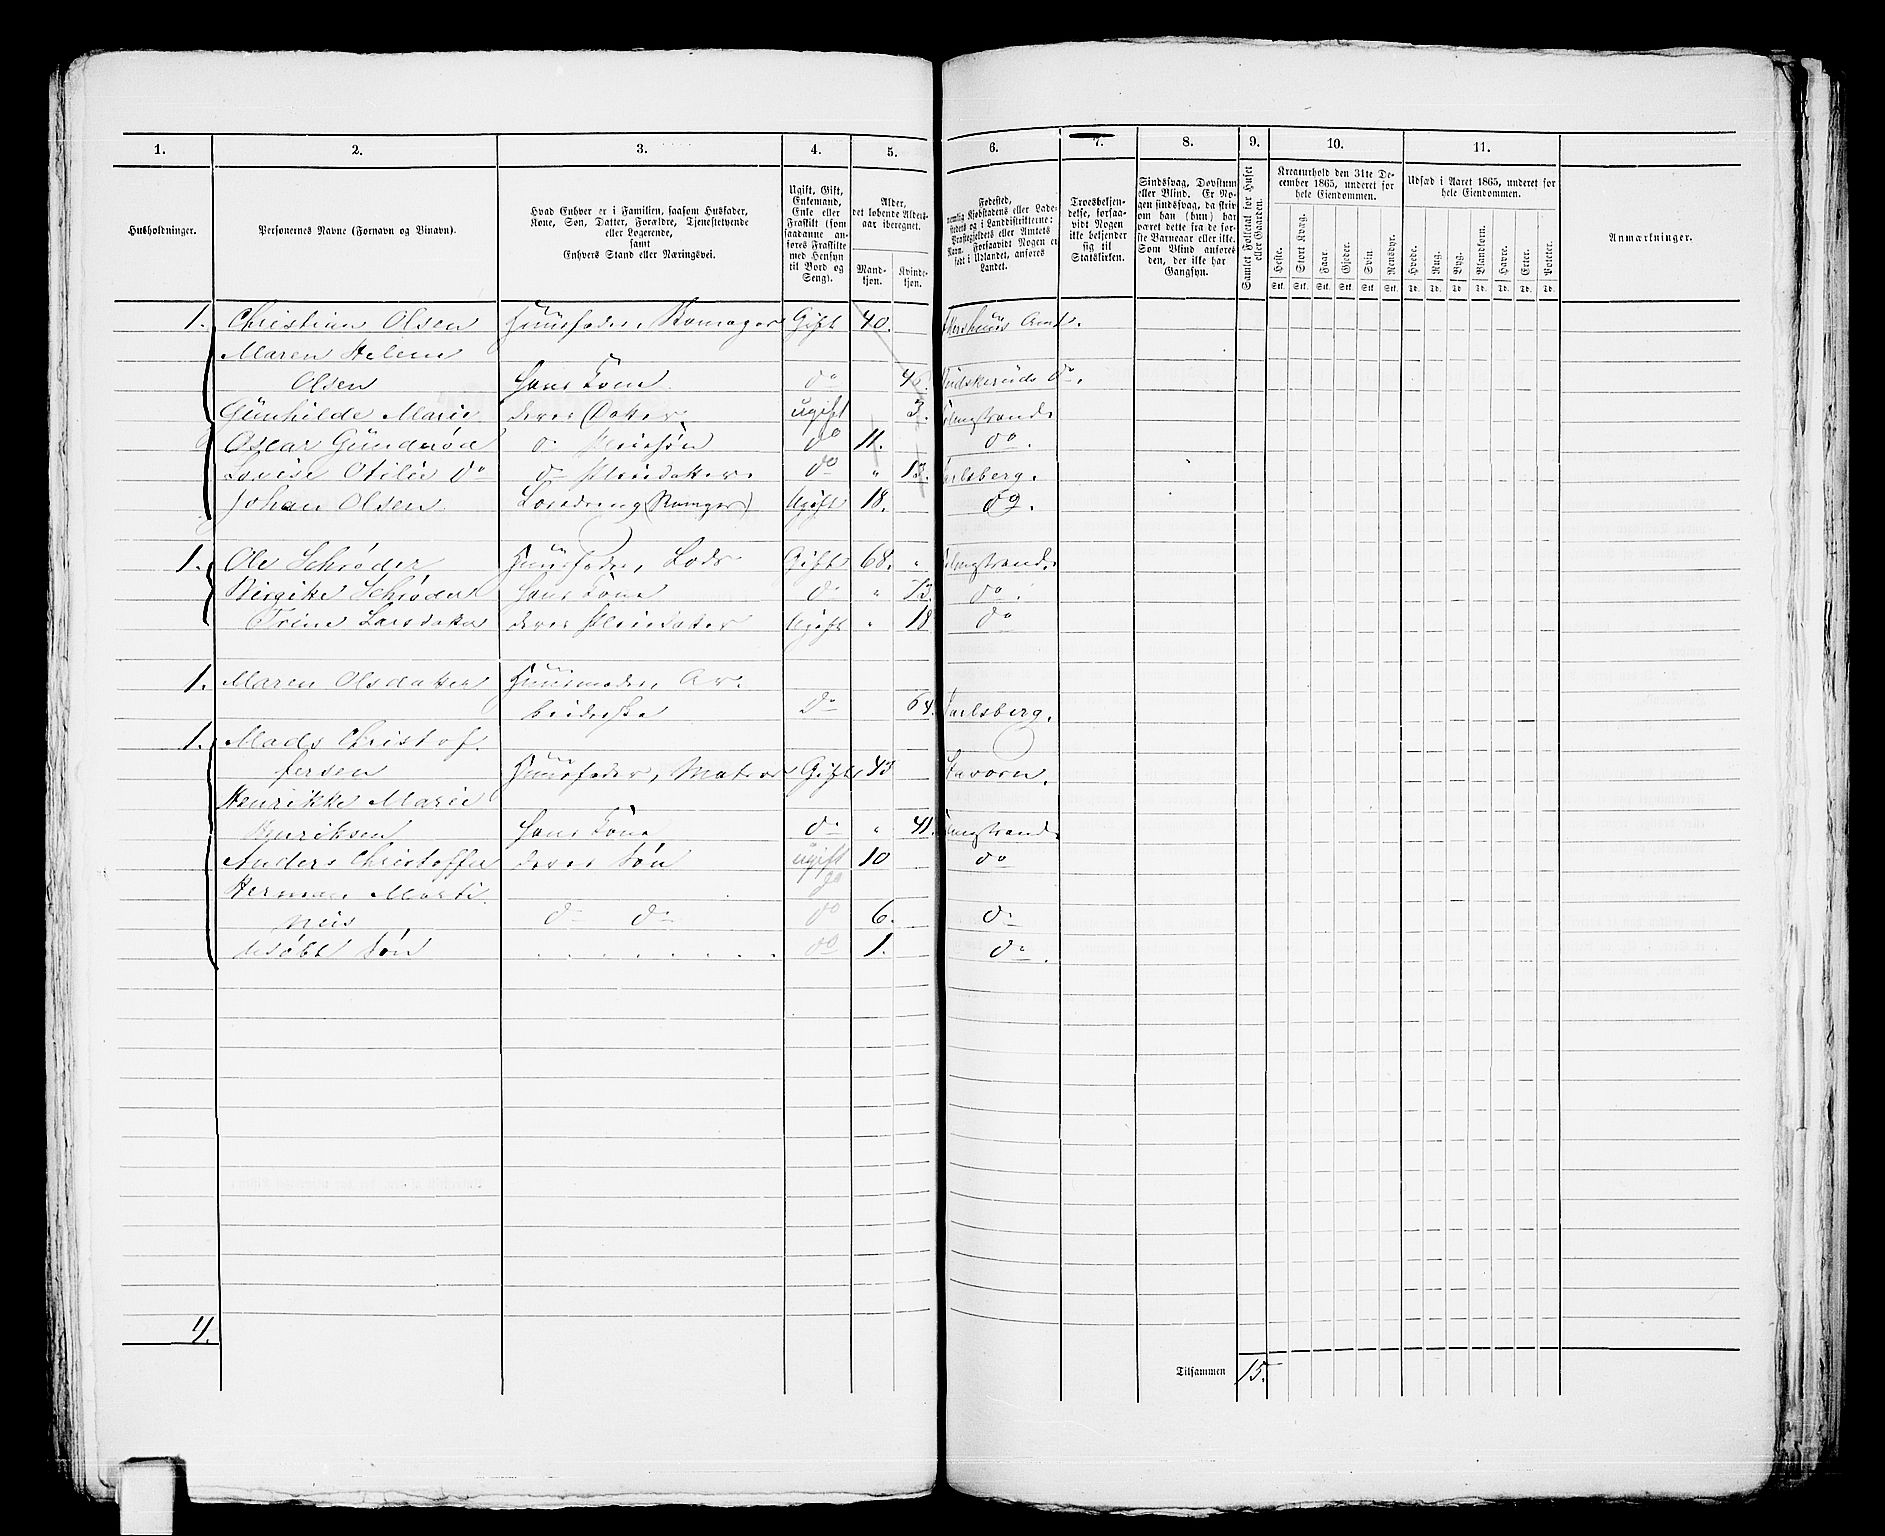 1. 2. 3. 4. 5. 6. 7. 8. 9. 10. 11.
Husholdninger.
Personernes Navne (Fornavn og Binavn).
Hvad Enhver er i Familien, saasom Husfader,
Kone, Søn, Datter, Forældre, Tjenestetyende
eller Logerende,
samt
Enhvers Stand eller Næringsvei.
Ugift, Gift,
Enkemand,
Enke eller
Fraskilt (som
saadanne an-
føres Fraskilte
med Hensyn
til Bord og
Seng).
Alder,
det løbende Alders-
aar iberegnet.
Mand-
kjøn.
Kvinde-
kjøn.
Fødested,
nemlig Kjøbstadens eller Lade-
stedets og i Landdistrikterne:
Præstegjeldets eller Amtets
Navn. Forsaavidt Nogen er
født i Udlandet, anføres
Landet.
Troesbekjen-
delse, forsaa-
vidt Nogen
ikke bekjender
sig til
Statskirken.
Sindssvag, Døvstum
eller Blind. Er No-
gen sindssvag, da skriv
om han (hun) har
været dette fra de før-
ste Barneaar eller ikke.
Som Blind anføres
den, der ikke har
Gangsyn.
Samlet Folketal for Huset
eller Gaarden.
Kreaturhold den 31te De-
cember 1865, underet for
hele Eiendommen.
Heste. Stort Kvæg. Faar. Gjeder. Svin. Rensdyr.
Stk. Stk. Stk. Stk. Stk. Stk.
Udsæd i Aaret 1865, underet for
hele Eiendommen.
Hvede. Rug. Byg. Blandkorn. Havre. Erter. Poteter.
Td. Td. Td. Td. Td. Td. Td.
Anmærkninger.
1. Christian Olsen Huusfader, Skomager Gift 40. Akershuus Amt.
Maren Helene
Olsen Hans Kone do Buskeruds do.
Gunhilde Marie deres Datter ugift 3. Holmstrand
Oscar Gunderød do Pleiesøn do 11. do
Lovise Otilie do do Pleiedatter do " 13. Jarlsberg.
Johan Olsen Ugift 18. do.
1. Ole Schrøder Huusfader, Lods Gift 68. " Holmstrand.
Birgitte Schrøder Hans Kone do " 73. do.
Trine Larsdatter deres Pleiedatter Ugift " 18 do
1. Maren Olsdatter Huusmoder, Ar-
beiderske do 64. Jarlsberg.
1. Mads Christof-
fersen Huusfader, Matros Gift 43 Stavern.
Henrikke Marie
Henriksen Hans Kone do " 41. Holmstrand
Anders Christoffer deres Søn ugift 10 do
Herman Marti- do
nius do do do 6. do
Udøbt Søn . . . . . . . . do 1. do.
4.
Tilsammen 15.